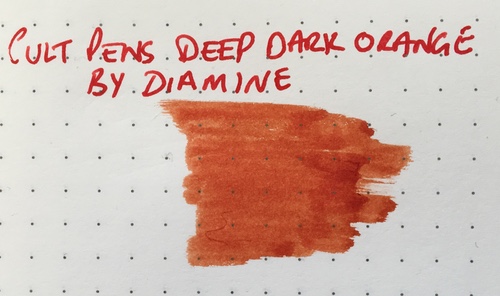 CULT PENS DEEP DARK ORANGE
BY DIAMINE